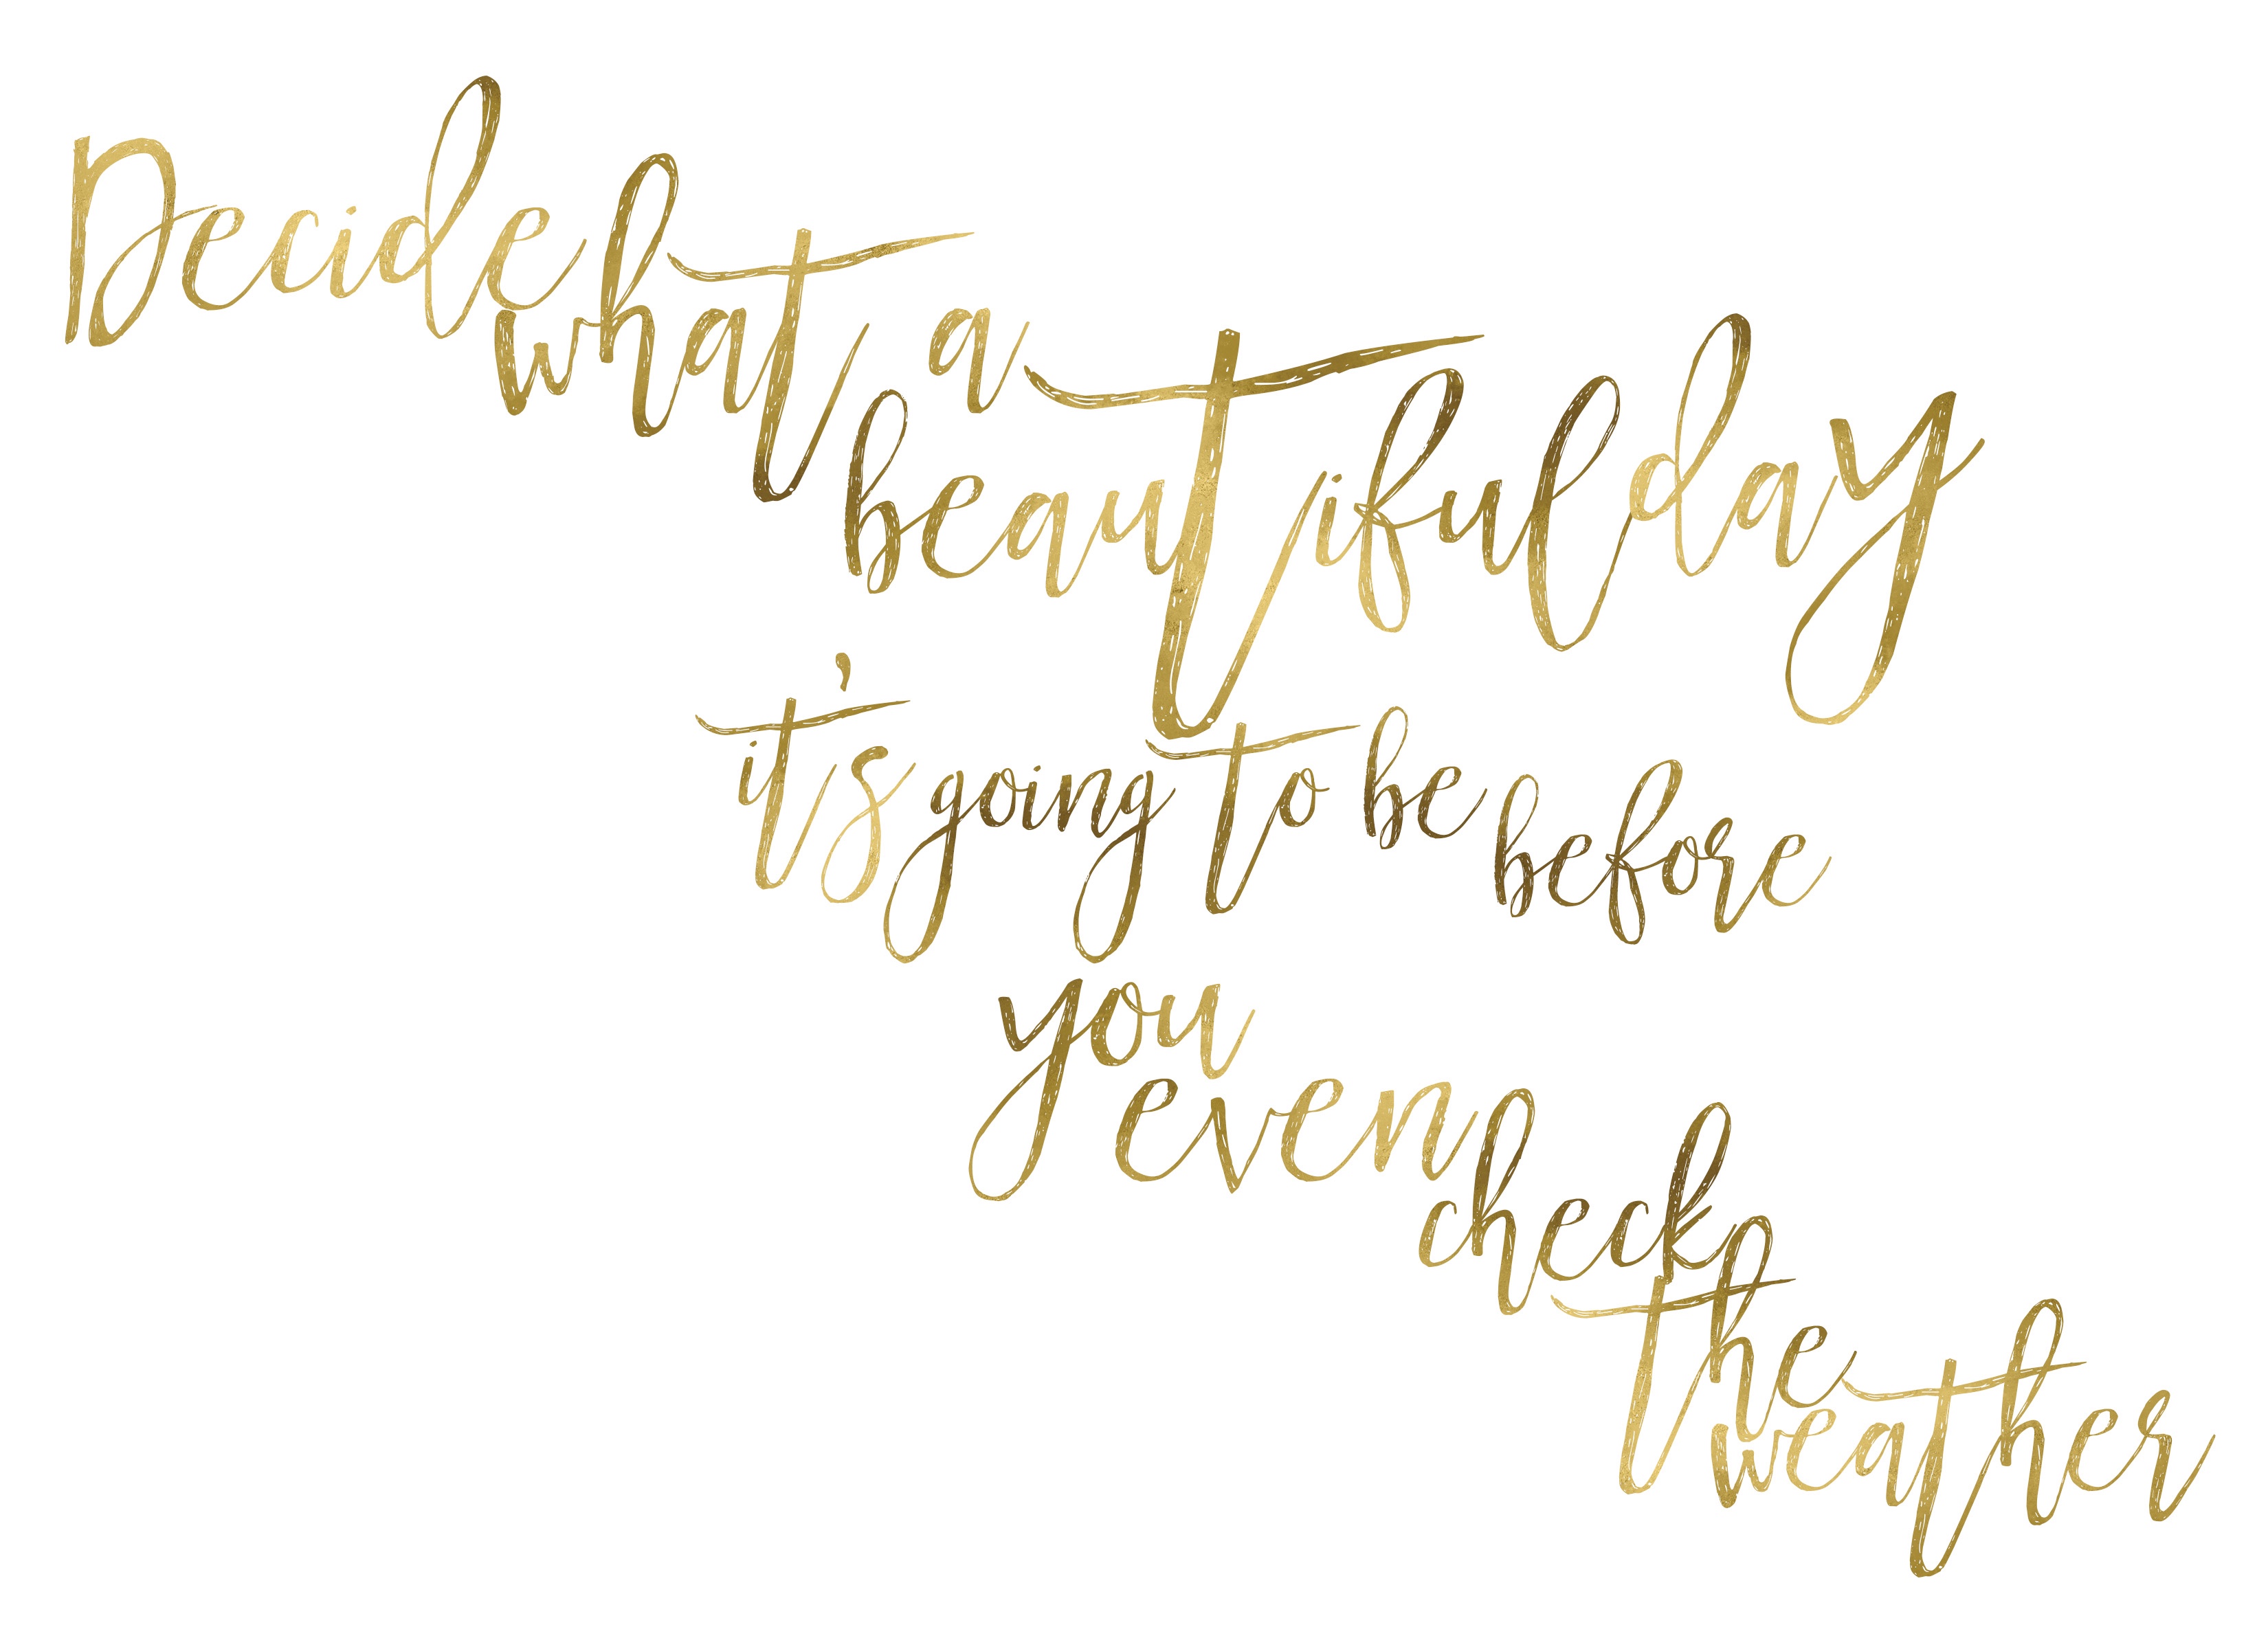 Decide what a
beautiful day
it's going to be before
you even
check
the
weather